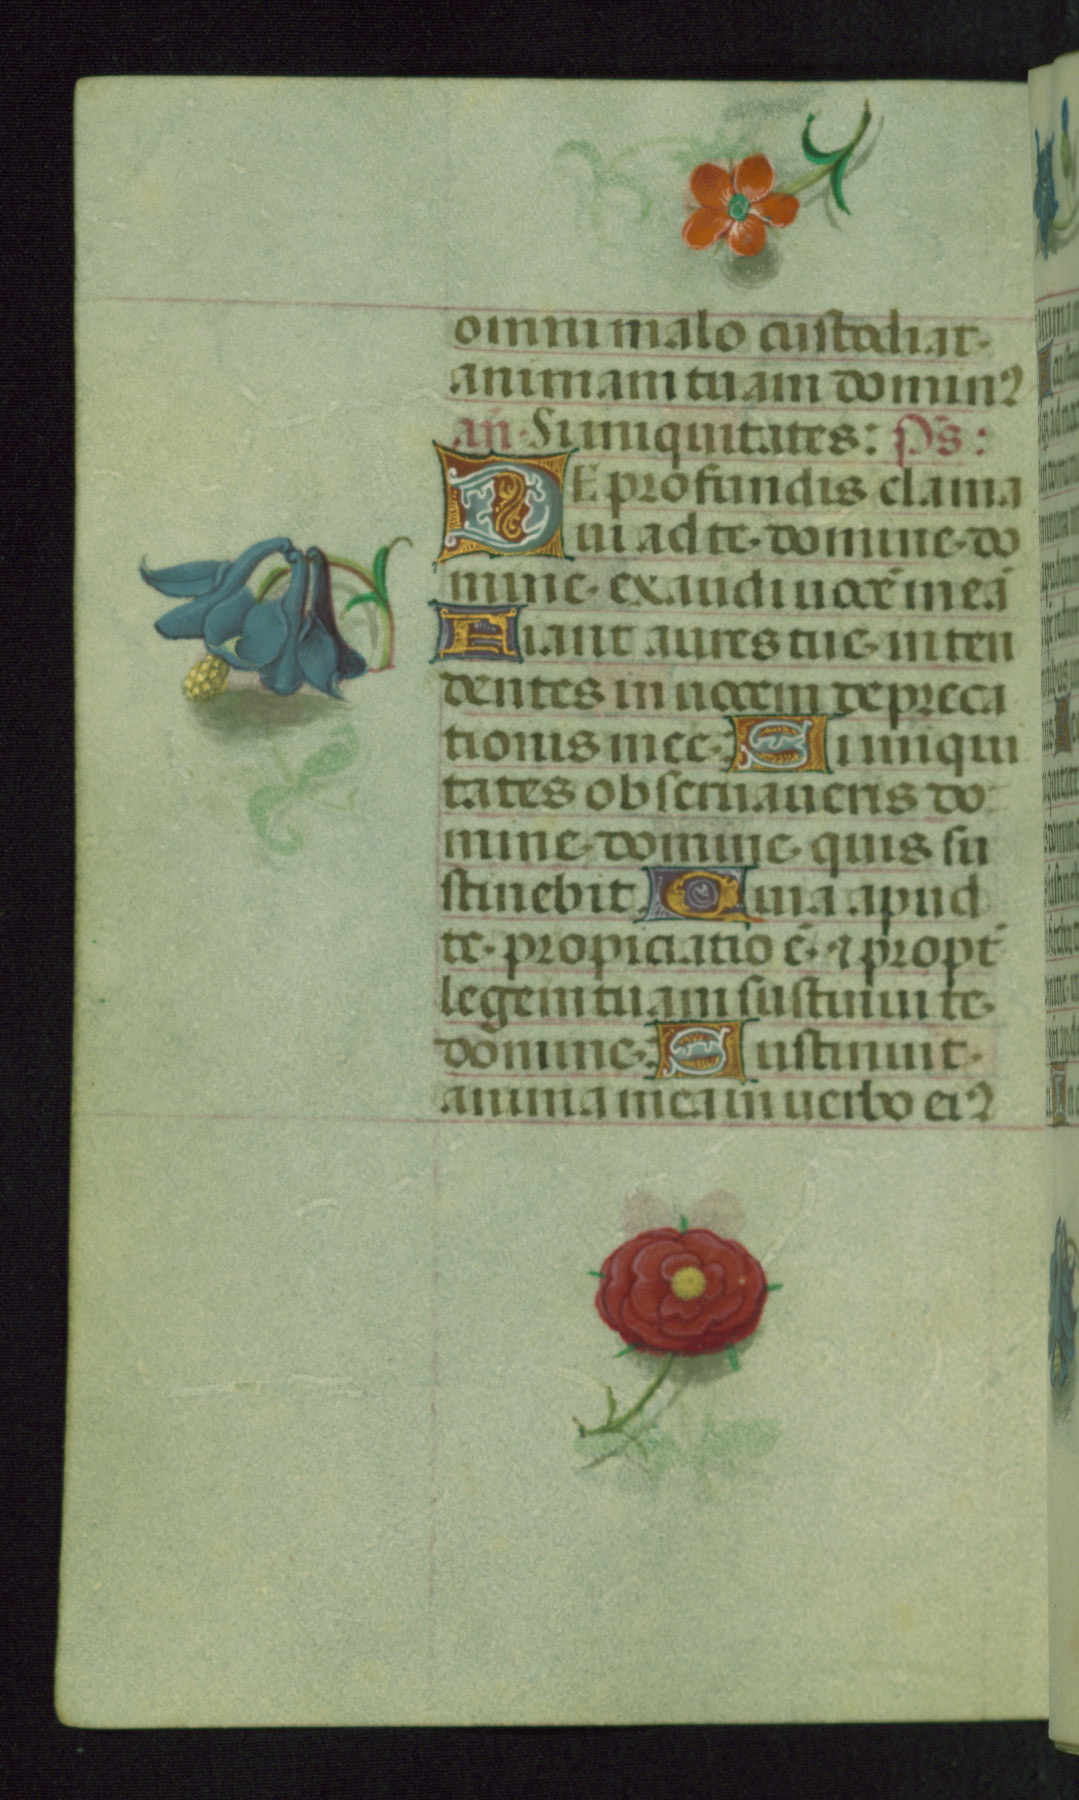 omni malo custodiat·
animam tuam domin9
añ· Si iniquitates: Ps̄:
DE profundis clama
ui ad te· domine· do
mine· exaudi uocē meā
Fiant aures tue· inten
dentes in uocem depreca
tionis mee· Si iniqui
tates obseruaueris do
mine· domine· quis su
stinebit Quia apud
te· propiciatio ē· ⁊ propt̄
legem tuam sustinui te·
domine· Sustinuit·
anima mea in uerbo ei9